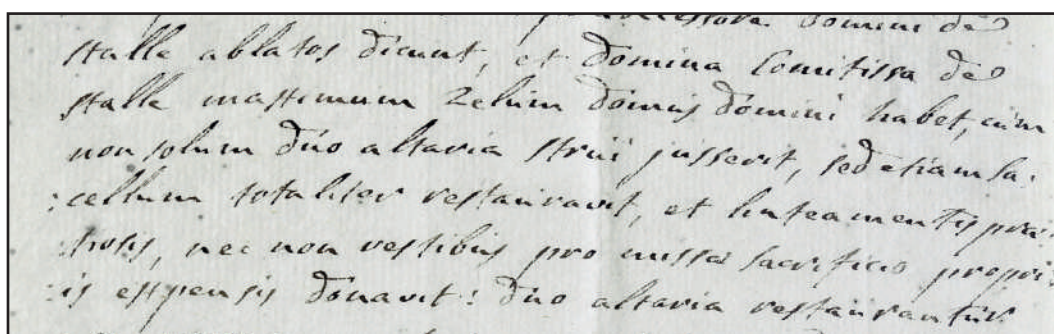 successore Domini de
stalle ablatos dicunt, et Domina Comitissa de
stalle maximum Zelum Domus Domini habet, cum
non solum duo altaria strui jusserit, sed etiam sa:
:cellum totaliter restauravit, et linteamentis præ:
:tiosis, nec non vestibus pro missæ sacrificio propri:
:is expensis donavit: duo altaria restaurantur